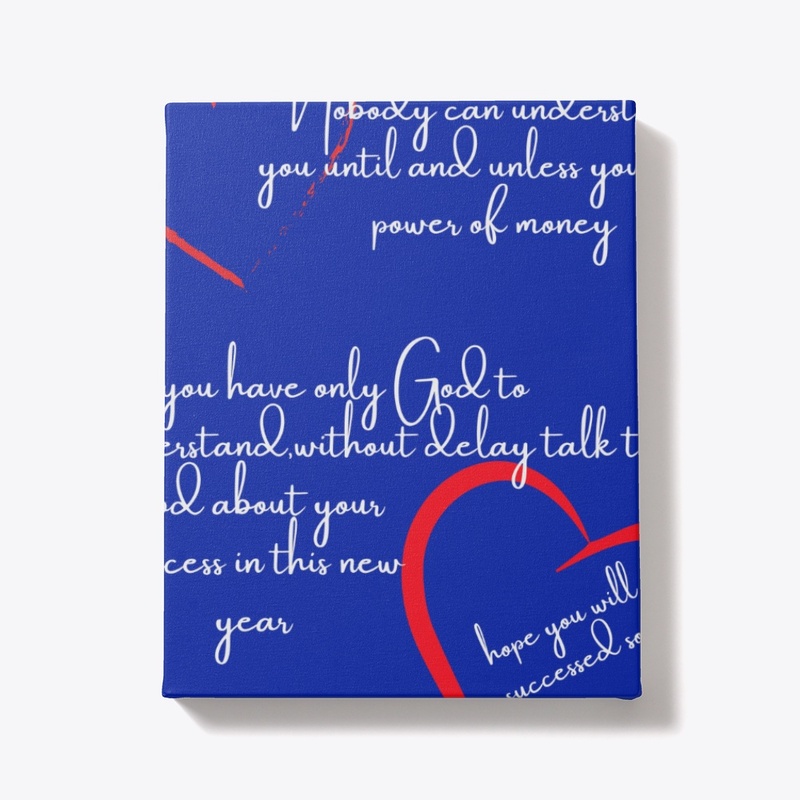 Nobody can underst
you until and unless you
power of money
you have only God to
erstand,without delay talk t
od about your
cess in this new
year
hope you will
successed so